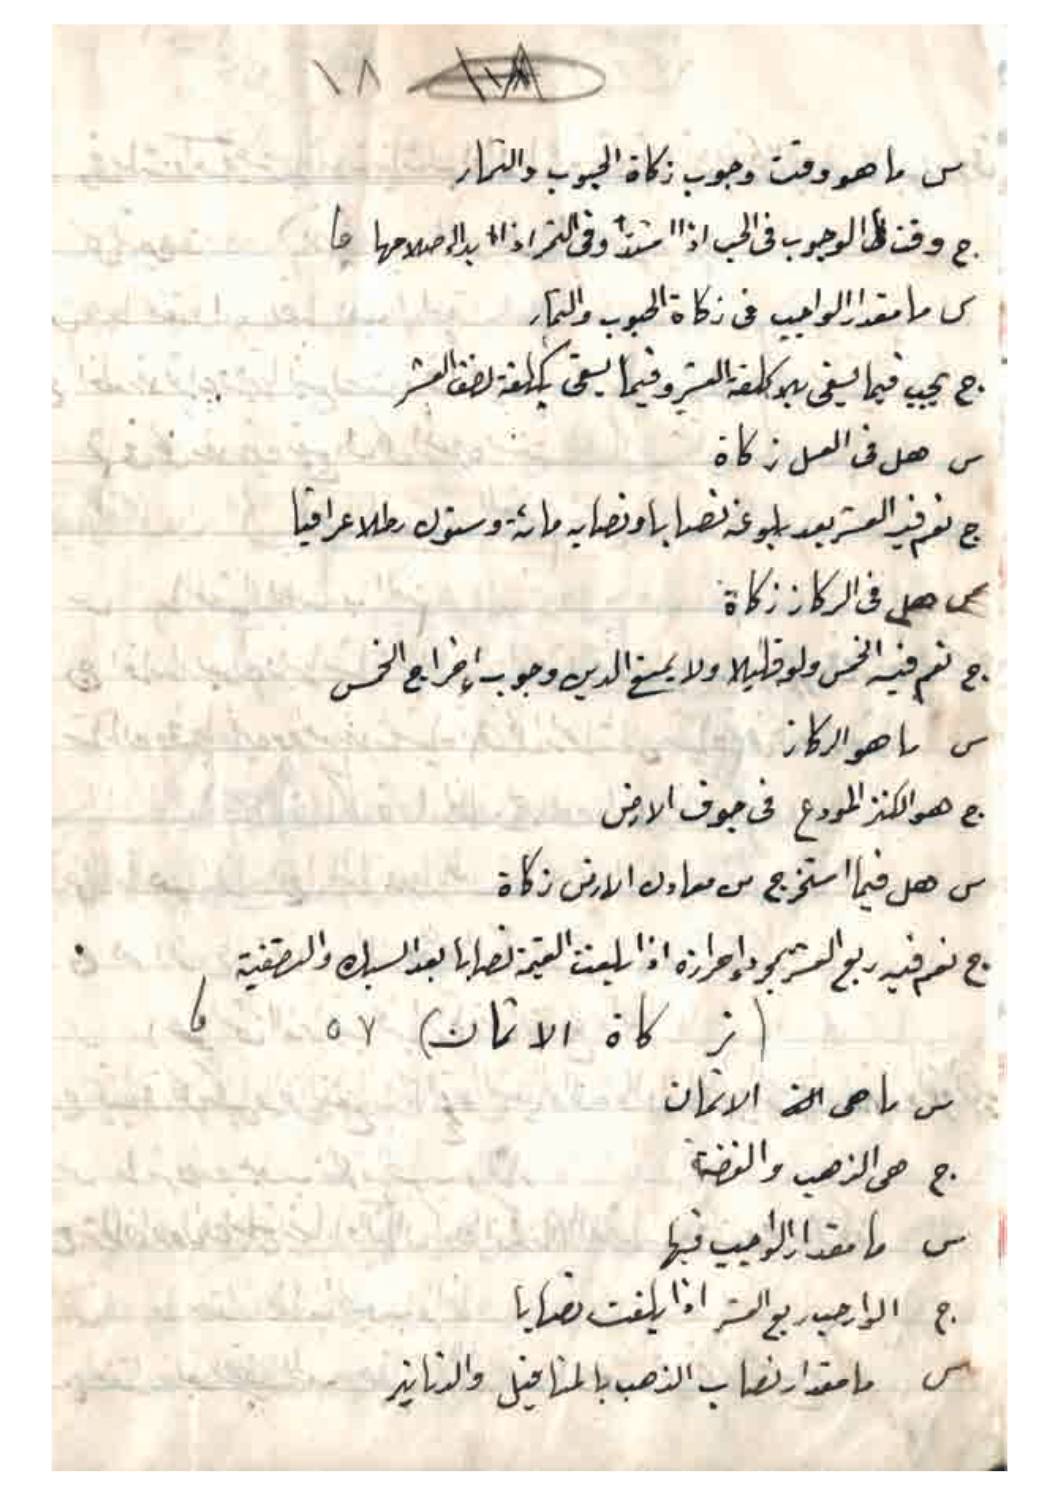 ١٨
س ما هو وقت وجوب زكاة الحبوب والثمار
ج وقت الوجوب في الحب اذا اشتد وفى الثمر اذا بدا صلاحها
س ما مقدار الواجب فى زكاة الحبوب والثمار
ج يجب فيما يسقى بلا كلفة العشر وفيما يسقى بكلفة نصف العشر
س هل فى العسل زكاة
ج نعم فيه العشر بعد بلوغه نصابا ونصابه مائة وستون رطلا عراقيا
س هل فى الركاز زكاة
ج نعم فيه الخمس ولو قليلا ولا يمنع الدين وجوب إخراج الخمس
س ما هو الركاز
ج هو الكنز المودع فى جوف الارض
س هل فيما استخرج من معادن الارض زكاة
ج نعم فيه ربع العشر بمجرد إحرازه اذا بلغت القيمة نصابا بعد السبك والتصفية
(زكاة الاثمان) ٥٧
س ما هى الاثمان
ج هى الذهب والفضة
س ما مقدار الواجب فيها
ج الواجب ربع العشر اذا بلغت نصابا
س ما مقدار نصاب الذهب بالمثاقيل والدنانير